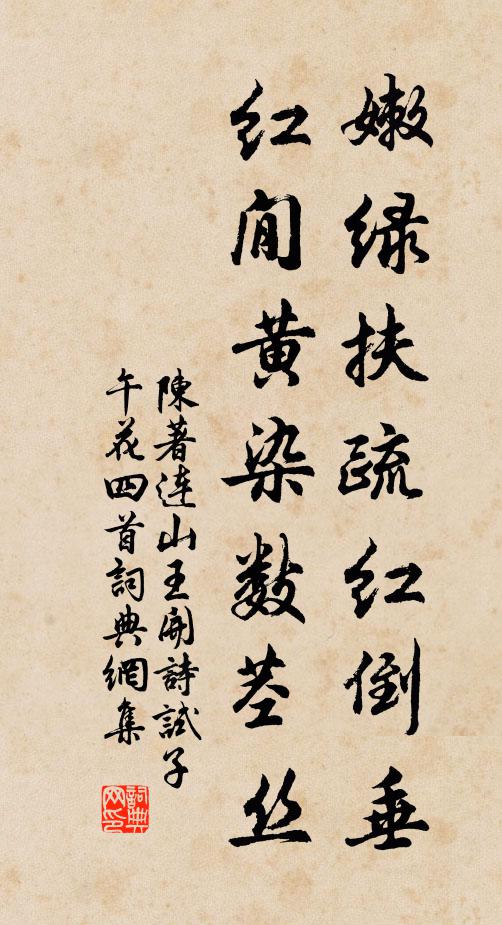 嫩绿扶疏红倒垂
红间黄染数茎丝
陳著連山王開詩試子
午花四首詞典網集
詞典网印